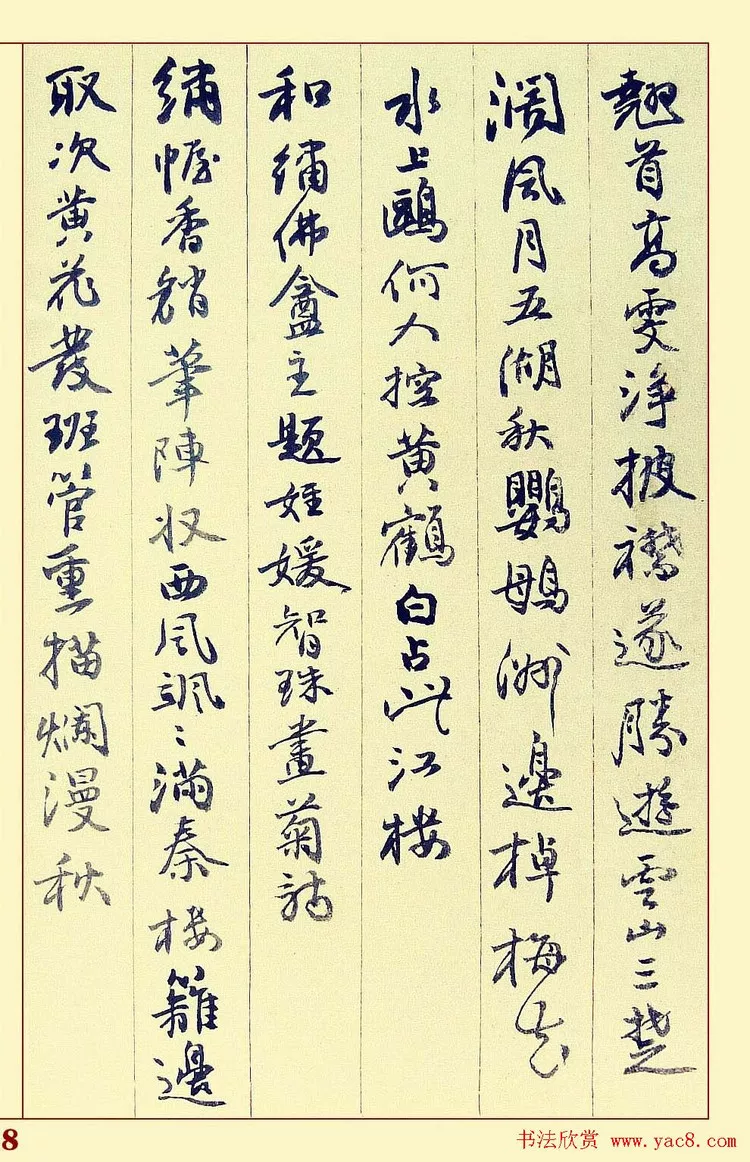 翹首高雯淨披襟遂勝遊雲山三楚
濶風月五湖秋鸚䳇洲邊棹梅花
水上鷗何人控黃鶴白占此江樓
和繡佛盦主題姪媛智珠畫菊韵
繡幄香銷筆陣收西風颯〻滿秦樓籬邊
取次黃花發班管重描爛漫秋
8
书法欣赏 www.yac8.com